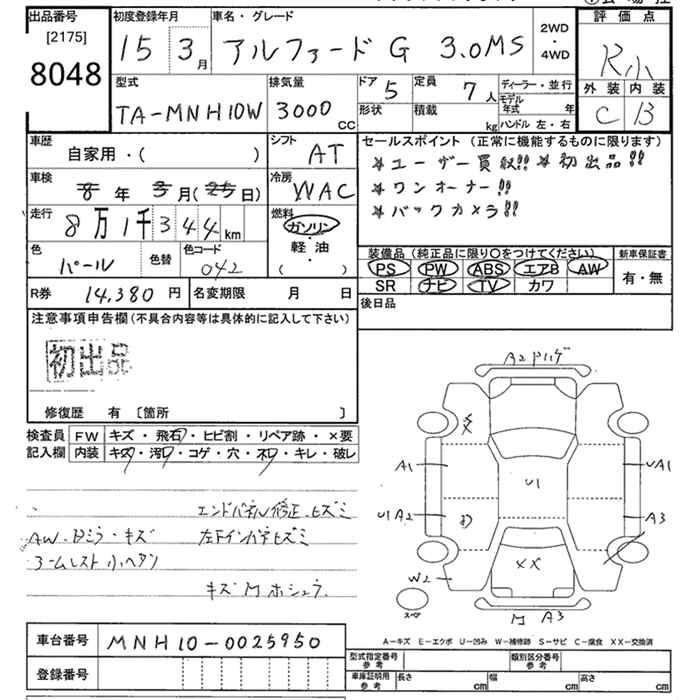 出品番号 初度登録年月 車名・グレード 2WD・4WD 評価点
[2175]
8048 15 3月 アルファードG 3.0MS R小
型式 排気量 ドア 5 定員 7人 ディーラー・並行 外装 内装
TA-MNH10W 3000cc 形状 積載 kg モデル年式 年 C B
ハンドル 左・右
車歴 自家用・( ) シフト AT セールスポイント(正常に機能するものに限ります)
車検 8年 3月(25日) 冷房 WAC *ユーザー買収!! *初出品!!
*ワンオーナー!!
走行 8万1千344km 燃料 ガソリン・軽・油( ) *バックカメラ!!
色 パール 色替 色コード 042 装備品(純正品に限り○をつけてください) 新車保証書
PS PW ABS エアB AW 有・無
SR ナビ TV カワ
R券 14,380円 名変期限 月 日 後日品
注意事項申告欄(不具合内容等は具体的に記入して下さい)
初出品
修復歴 有 [箇所 ]
検査員 FW キズ・飛石・ヒビ割・リペア跡・×要
記入欄 内装 キズ・汚レ・コゲ・穴・ネジ・キレ・破レ
エンドパネル修正、ヒズミ
AW、Dミラ・キズ 左下インパネヒズミ
アームレスト小ヘタリ
A2
A1 U1 UA1
U1A2 A3
W2 XX
スペア
A3
A-キズ E-エクボ U-凹み W-補修跡 S-サビ C-腐食 XX-交換済
車台番号 MNH10-0025950
型式指定番号 参考 類別区分番号 参考
登録番号 車庫証明用 参考 長さ cm 幅 cm 高さ cm